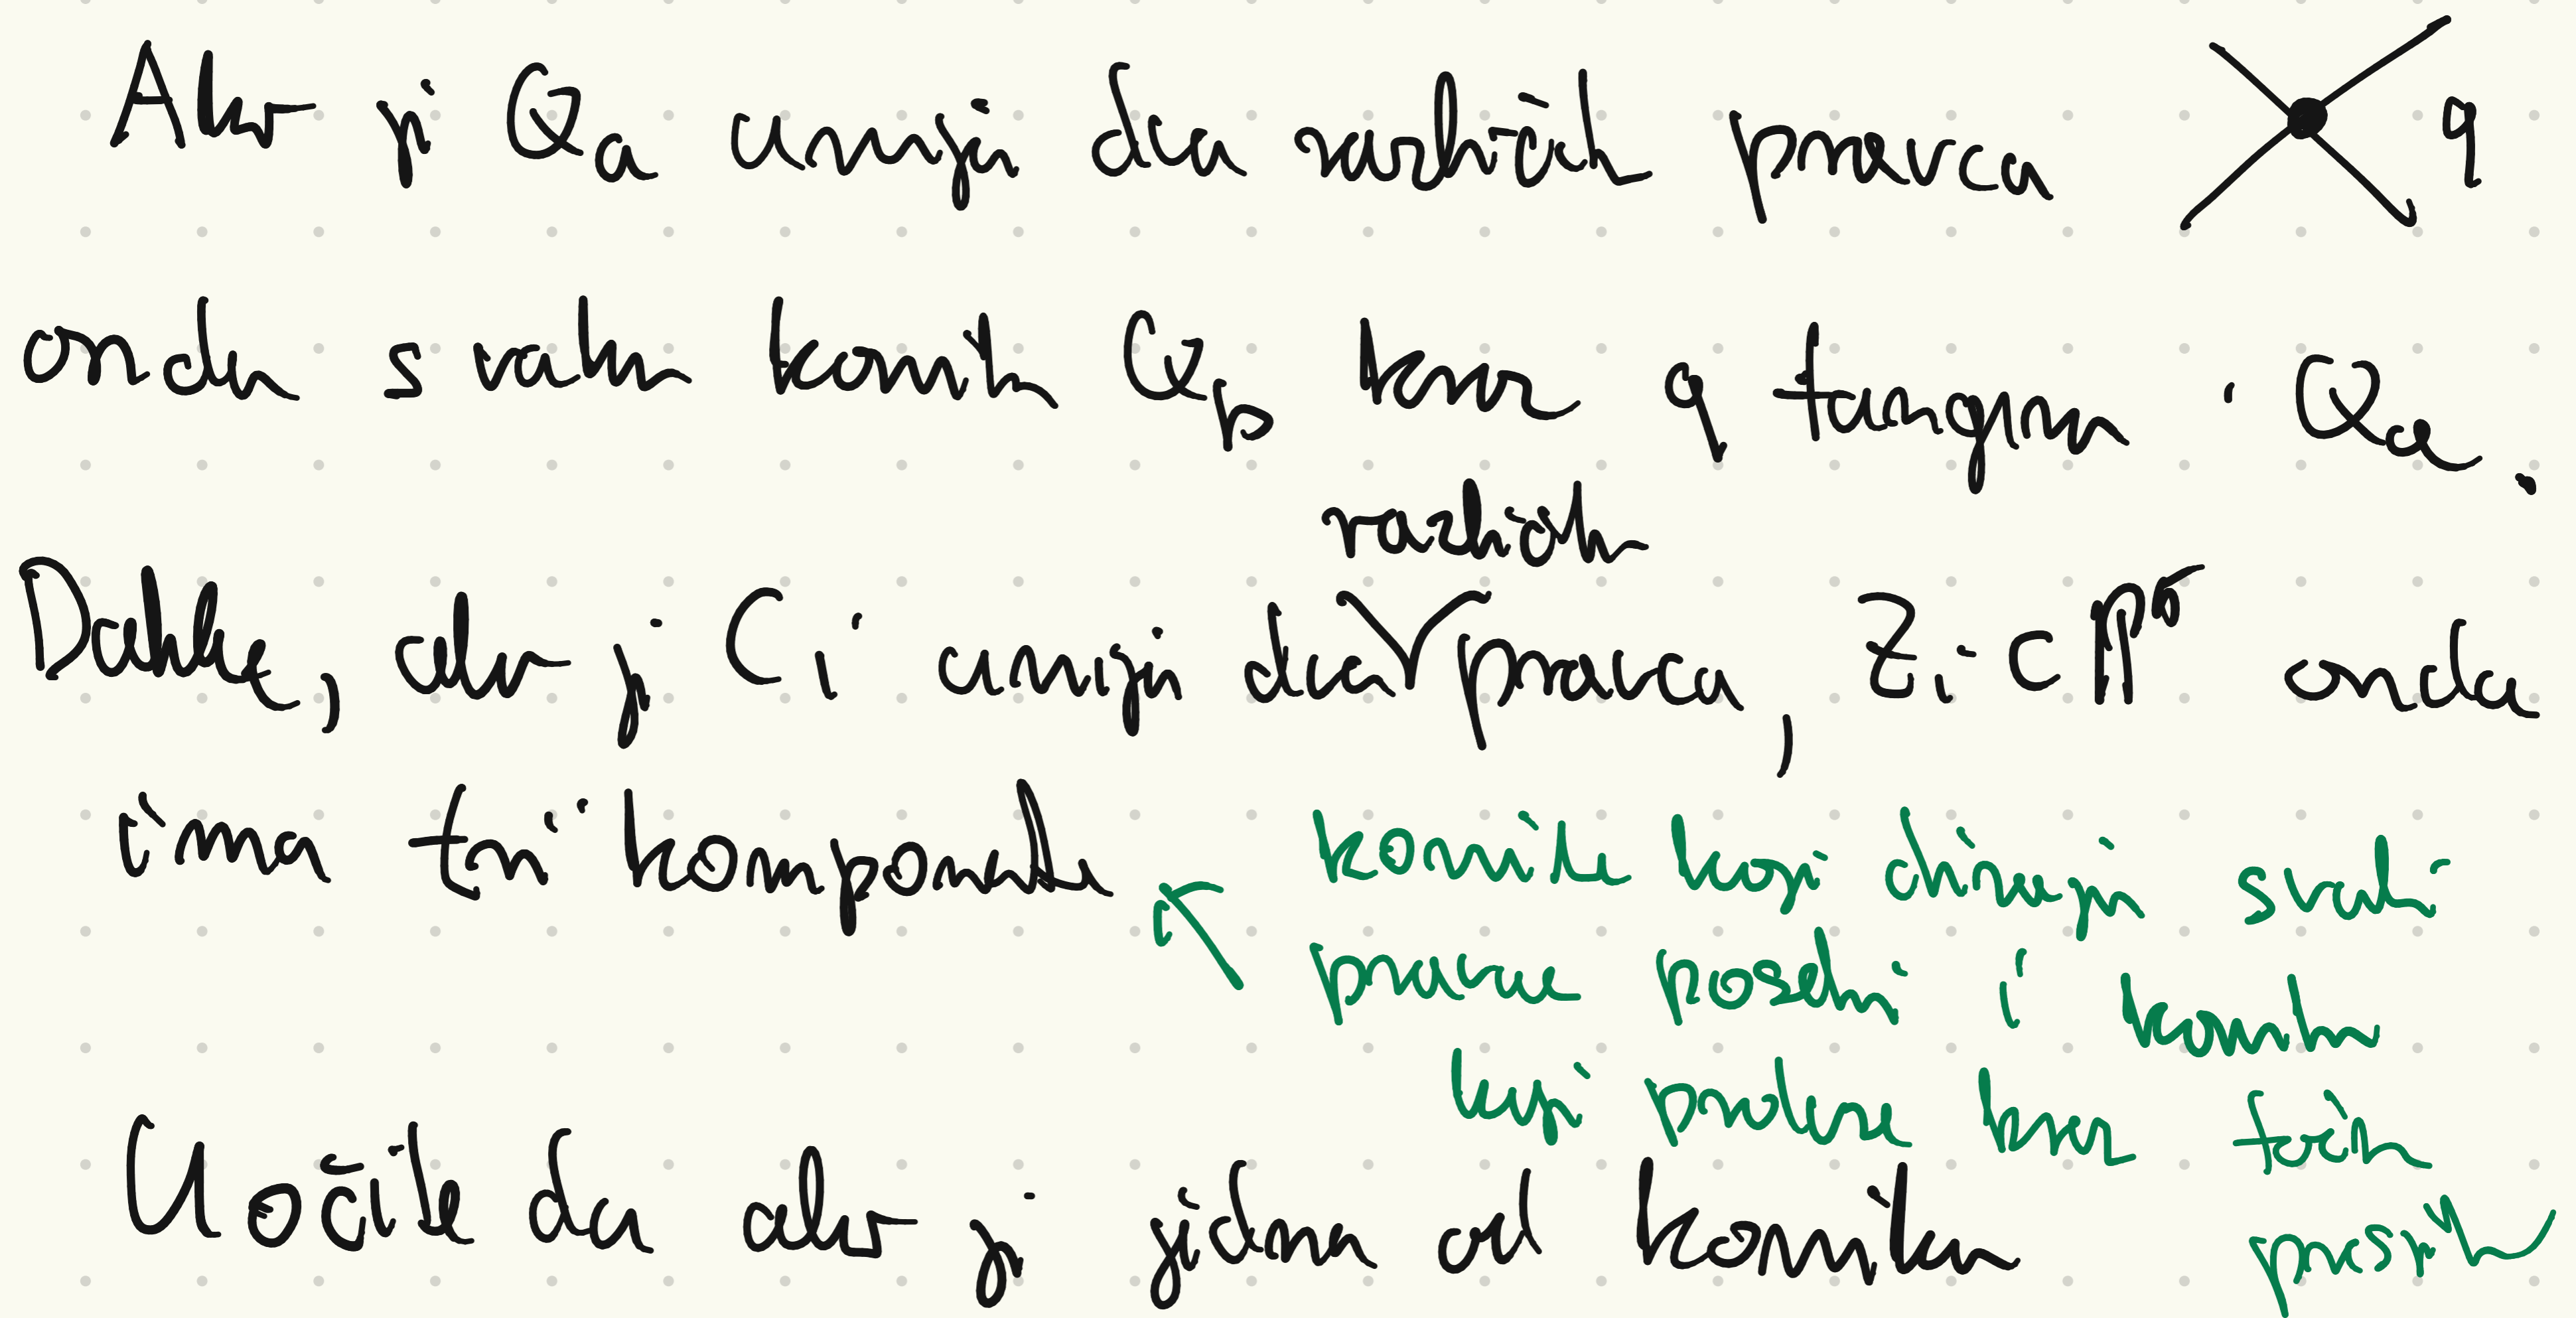 Ako je Q_a unija dva različita pravca q
onda svaka konika Q_b kroz q tangira Q_a.
različita
Dakle, ako je C_i unija dva pravca, Z_i ⊂ ℙ⁵ onda
ima tri komponente
konike koje diraju svaki
pravac posebno i konika
koje prolaze kroz točku
presjeka
Uočite da ako je jedna od konika